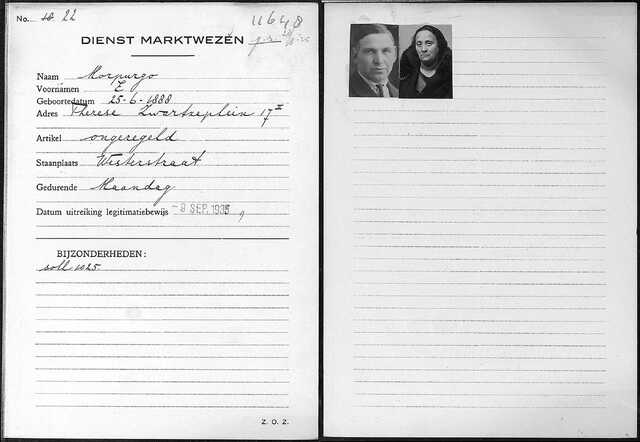 No. 22
11648
DIENST MARKTWEZEN
Naam Morpurgo
Voornamen E.
Geboortedatum 25-6-1888
Adres Therese Zwartzeplein 17 II
Artikel ongeregeld
Staanplaats Westerstraat
Gedurende Maandag
Datum uitreiking legitimatiebewijs -9 SEP. 1935
BIJZONDERHEDEN:
soll 1025.
Z. O. Z.